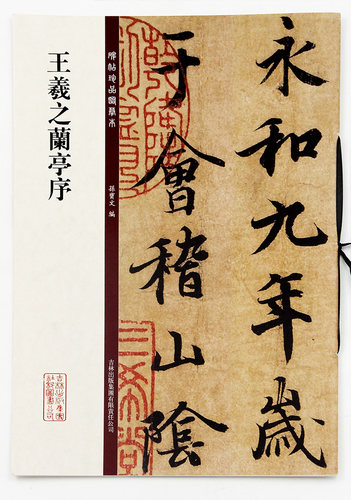 永和九年歲
于會稽山陰
王羲之蘭亭序
孫寶文 編
吉林出版集團有限責任公司